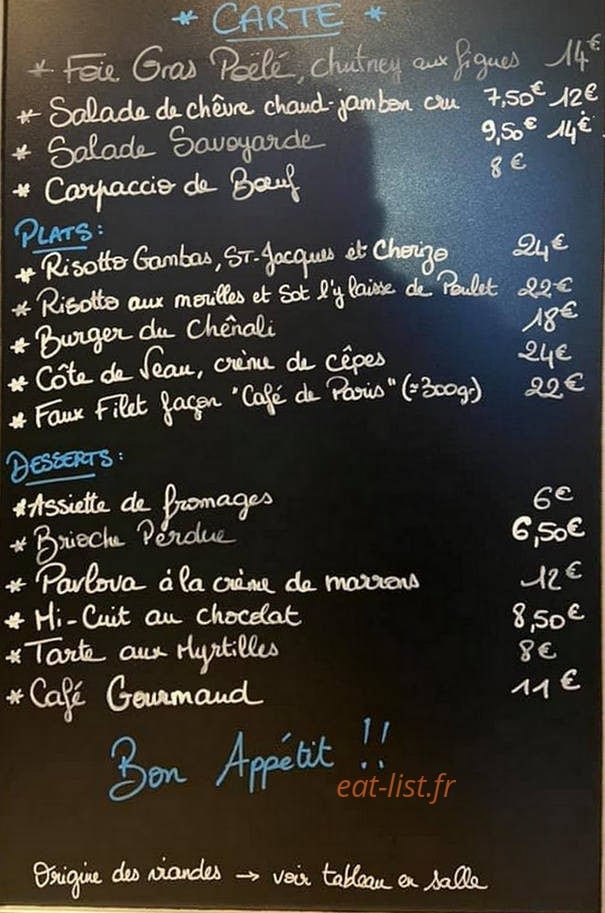 * CARTE *
* Foie Gras Poêlé, chutney aux figues 14€
* Salade de chèvre chaud-jambon cru 7,50€ 12€
* Salade Savoyarde 9,50€ 14€
* Carpaccio de Bœuf 8€
PLATS:
* Risotto Gambas, ST-Jacques et Chorizo 24€
* Risotto aux morilles et Sot l'y laisse de Poulet 22€
* Burger du Chênali 18€
* Côte de Veau, crème de cêpes 24€
* Faux Filet façon "Café de Paris" (≈300gr) 22€
DESSERTS:
* Assiette de fromages 6€
* Brioche Perdue 6,50€
* Pavlova à la crème de marrons 12€
* Mi-Cuit au chocolat 8,50€
* Tarte aux Myrtilles 8€
* Café Gourmand 11€
Bon Appétit !!
eat-list.fr
Origine des viandes → voir tableau en salle